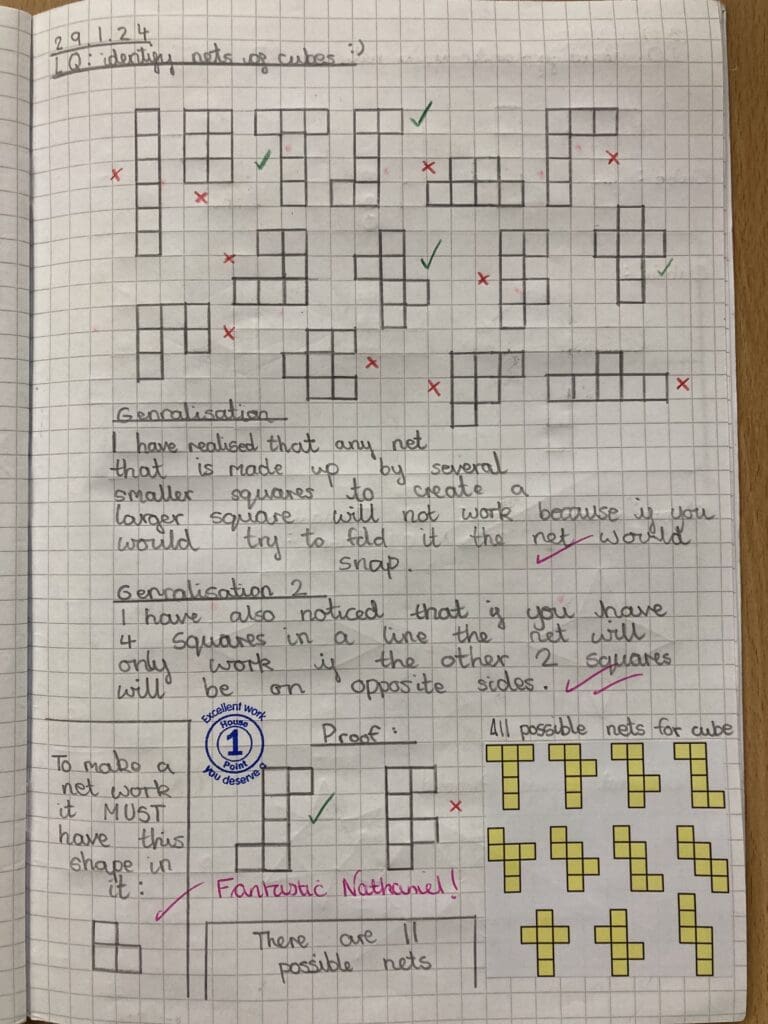 29 1.24
LQ: identify nets of cubes :)
Genralisation
I have realised that any net
that is made up by several
smaller squares to create a
larger square will not work because if you
would try to fold it the net would
snap.
Genralisation 2
I have also noticed that if you have
4 squares in a line the net will
only work if the other 2 squares
will be on opposite sides.
To make a
net work
it MUST
have this
shape in
it:
Excellent work
House
1
Point
you deserve a
Proof:
Fantastic Nathaniel!
There are 11
possible nets
All possible nets for cube